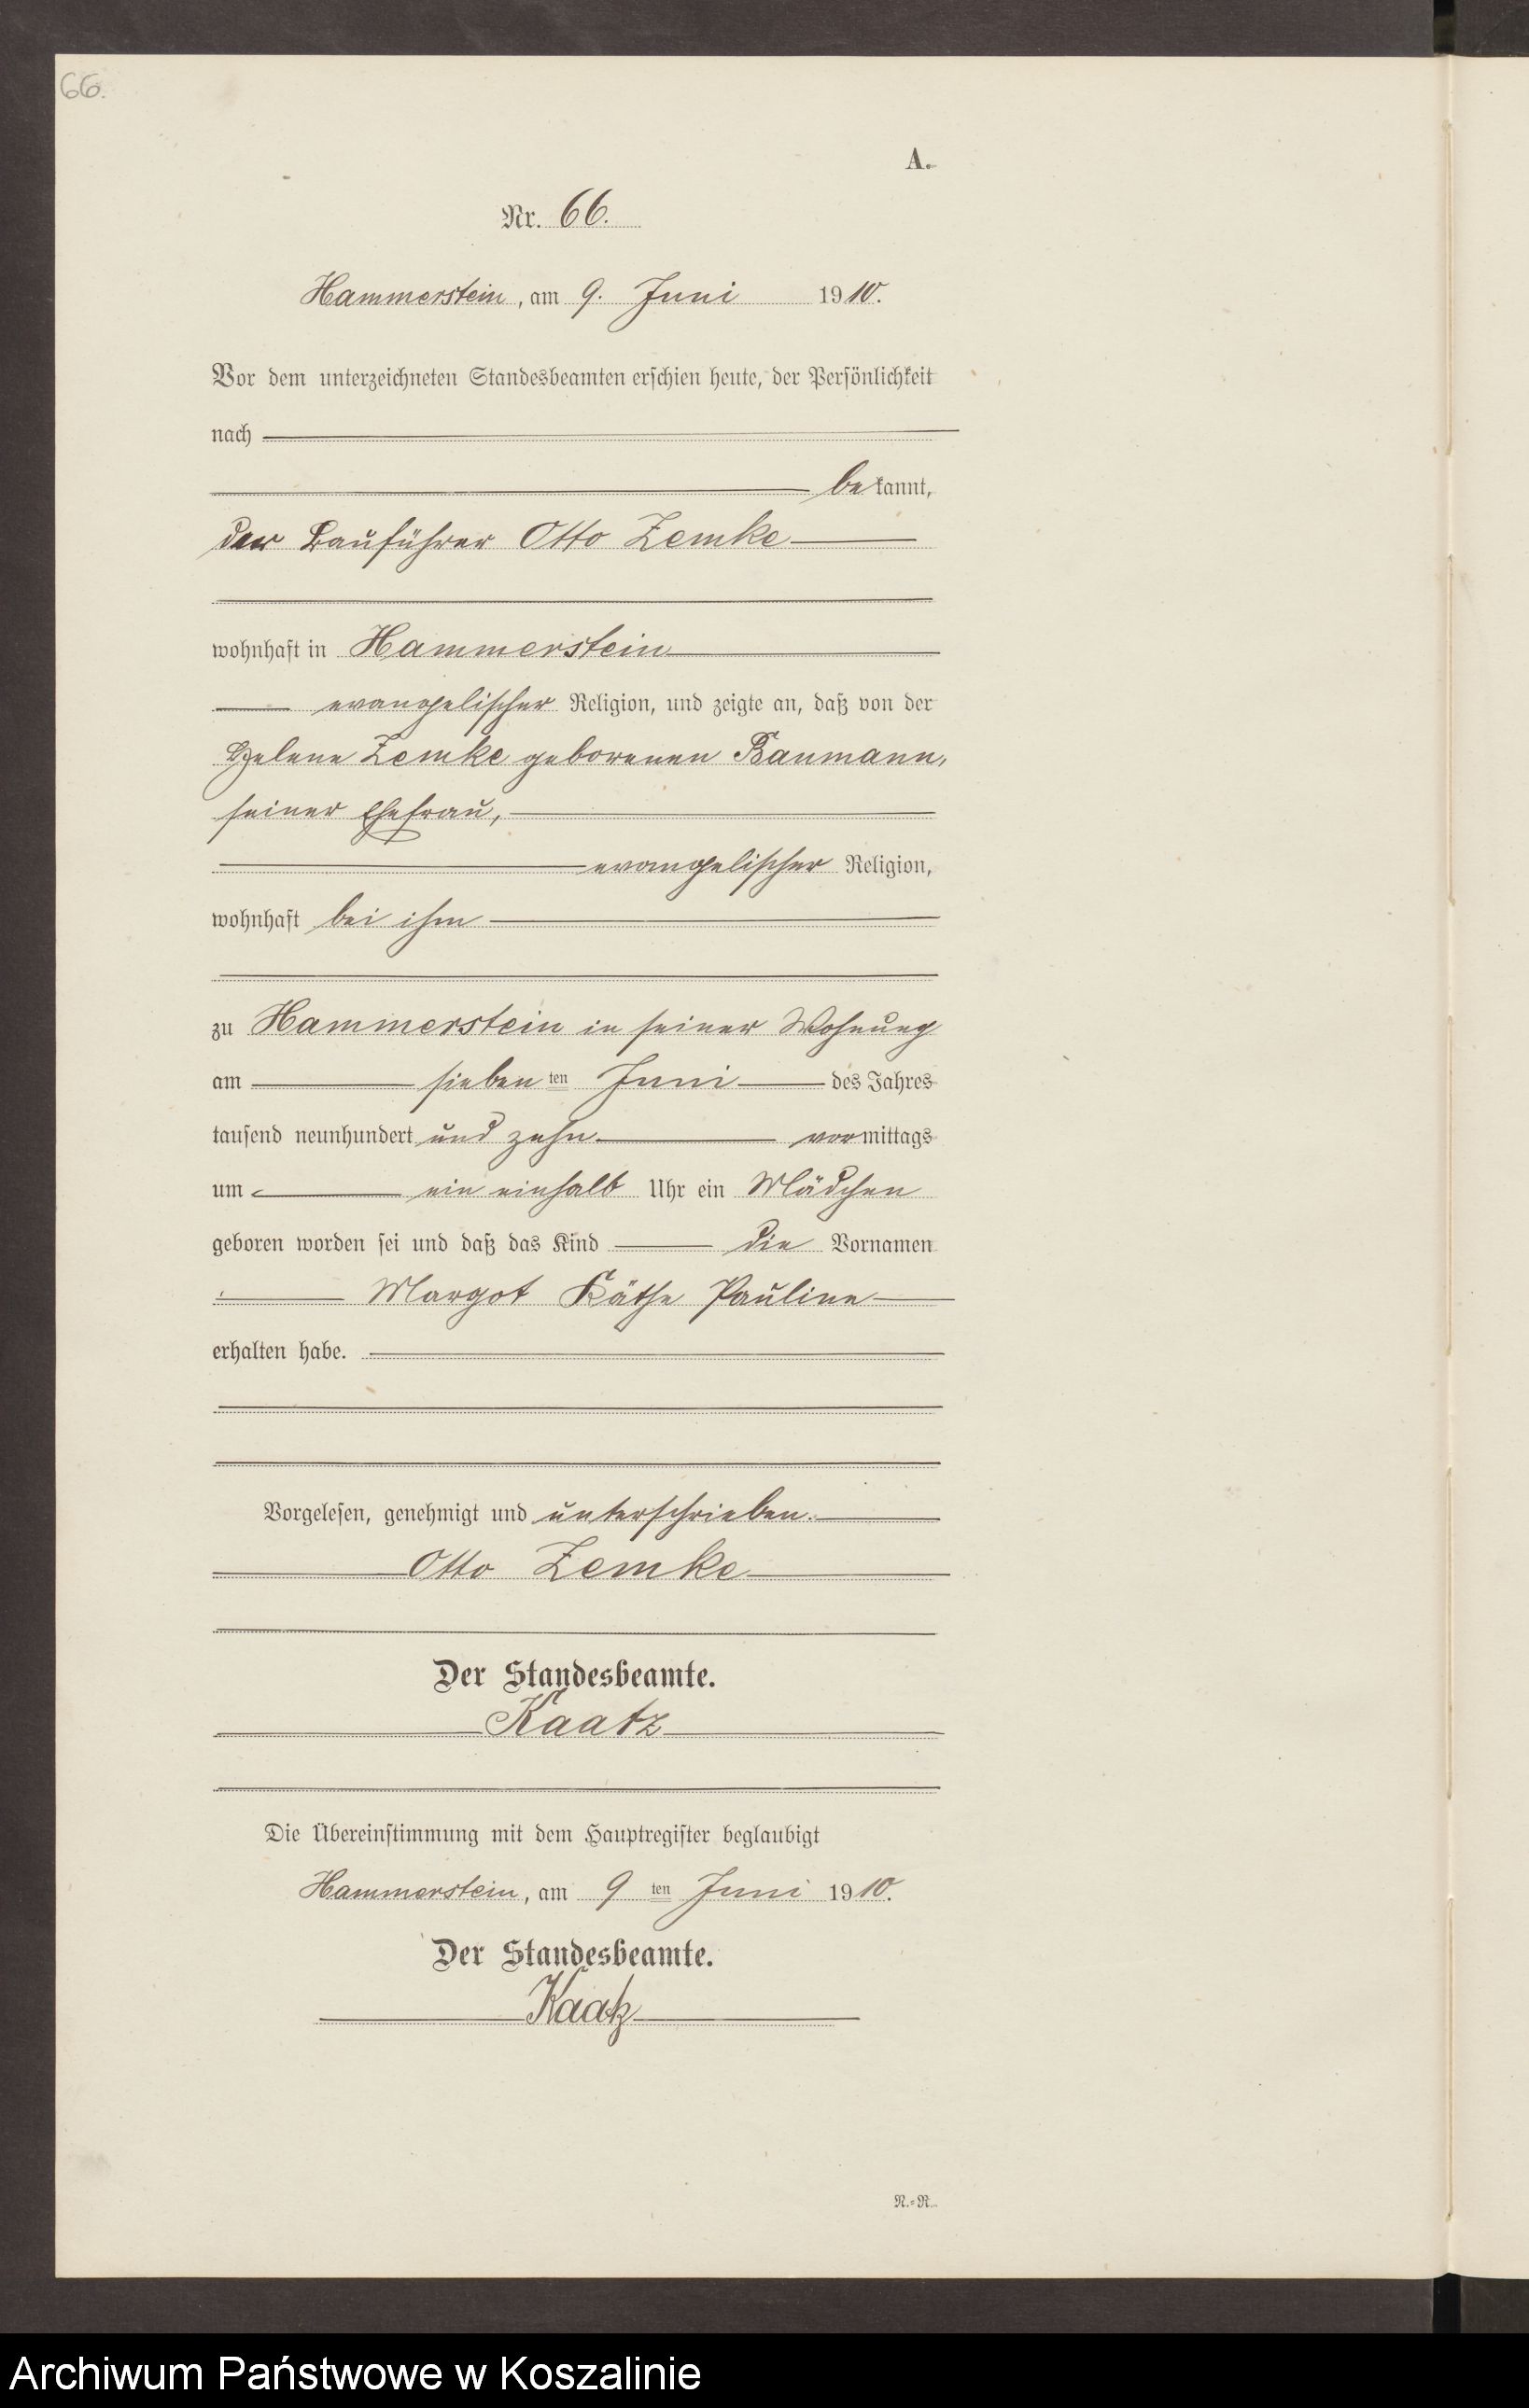 66.
A.
Nr. 66.
Hammerstein, am 9. Juni 1910.
Vor dem unterzeichneten Standesbeamten erschien heute, der Persönlichkeit
nach
bekannt,
der Bauführer Otto Zemke
wohnhaft in Hammerstein
evangelischer Religion, und zeigte an, daß von der
Helene Zemke geborenen Baumann,
seiner Ehefrau,
evangelischer Religion,
wohnhaft bei ihm
zu Hammerstein in seiner Wohnung
am siebenten Juni des Jahres
tausend neunhundert und zehn vormittags
um ein einhalb Uhr ein Mädchen
geboren worden sei und daß das Kind die Vornamen
Margot Käthe Pauline
erhalten habe.
Vorgelesen, genehmigt und unterschrieben.
Otto Zemke
Der Standesbeamte.
Kaatz
Die Übereinstimmung mit dem Hauptregister beglaubigt
Hammerstein, am 9ten Juni 1910.
Der Standesbeamte.
Kaatz
N.=R.
Archiwum Państwowe w Koszalinie